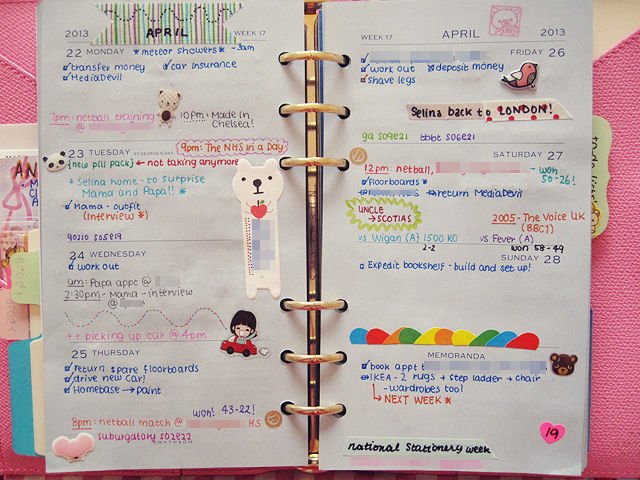 2013
APRIL
WEEK 17
22 MONDAY * meteor showers * ~3am
transfer money
car insurance
MediaDevil
7pm: netball training
@
10pm: Made in
Chelsea!
23 TUESDAY ST GEORGE'S DAY
9pm: The NHS in a Day
{new pill pack} ← not taking anymore
* Selina home - to surprise
Mama and Papa!! *
Mama - outfit
(interview *)
90210 S05E19
24 WEDNESDAY
work out
am: Papa appt @
2:30pm - Mama - interview
@
++ picking up car @ 4pm
25 THURSDAY
return spare floorboards
drive new car!
Homebase → paint
won! 43-22!
8pm: netball match @ HS
suburgatory S02E22
WEEK 17
APRIL
2013
FRIDAY 26
work out
deposit money
shave legs
Selina back to LONDON!
ga S09E21 tbbt S06E21
SATURDAY 27
12pm: netball, - won
50-26!
floorboards *
return MediaDevil
UNCLE
→ SCOTIAS
2005 - The Voice UK
(BBC1)
vs Wigan (A) 1500 KO
2-2
vs Fever (A)
won 58-49
SUNDAY 28
Expedit bookshelf - build and set up!
MEMORANDA
book appt t
IKEA - 2 rugs + step ladder + chair
- wardrobes too!
→ NEXT WEEK *
19
national Stationery week
to do list